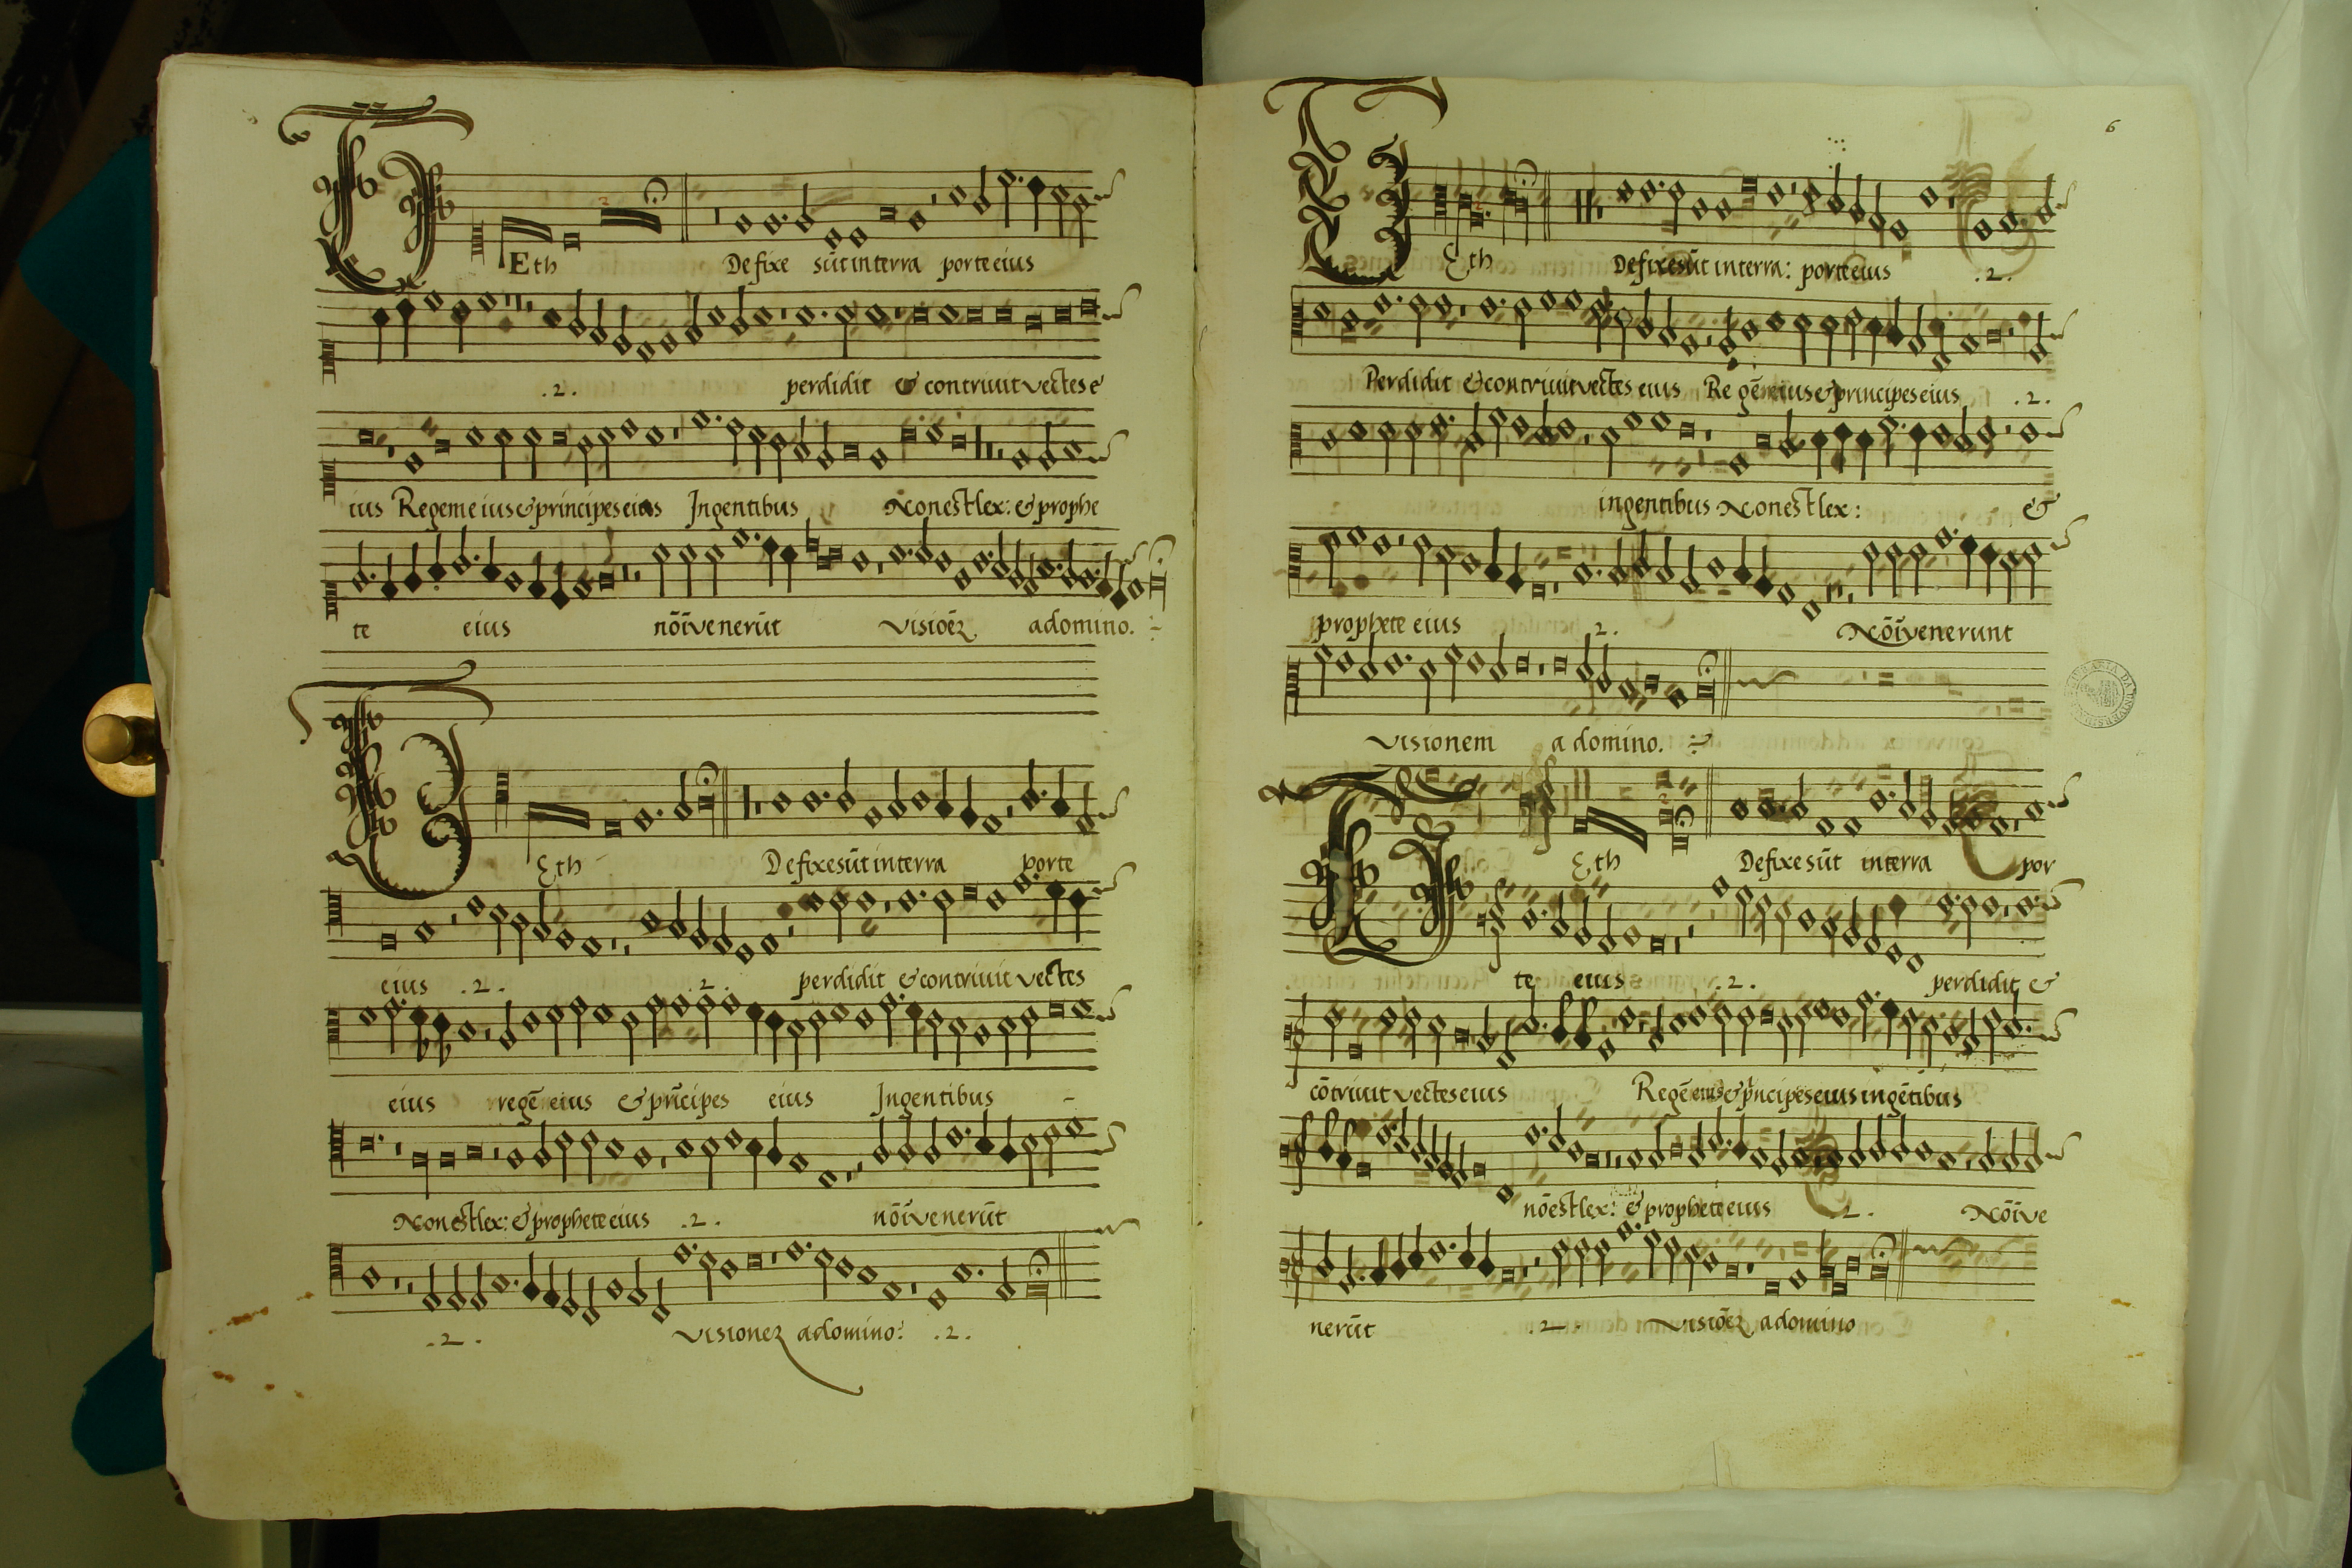 Eth Defixe sūt in terra porte eius
.2. perdidit & contriuit vectes e
ius Regem eius & principes eius In gentibus Non est lex: & prophe
te eius nō īvenerūt visioēz a domino.
Eth Defixe sūt in terra porte
eius .2. .2. perdidit & contriuit vectes
eius regē eius & prīcipes eius In gentibus
Non est lex: & prophete eius .2. nō īvenerūt
.2. visionez a domino: .2.
6
Eth Defixe sūt in terra: porte eius .2.
Perdidit & contriuit vectes eius Regē eius & principes eius .2.
in gentibus Non est lex: &
prophete eius .2. Nō īvenerunt
visionem a domino.
Eth Defixe sūt in terra por
te eius .2. perdidit &
cōtriuit vectes eius Regē eius & prīcipes eius in gētibus
nō est lex: & prophete eius .2. Nō īve
nerūt .2. visioēz a domino